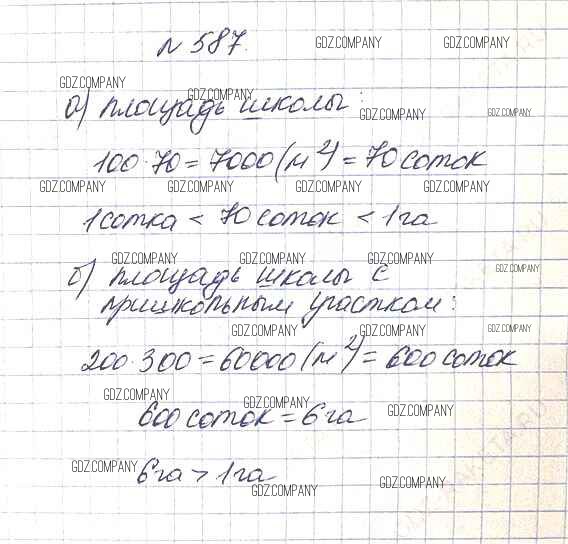 № 587.
GDZ.COMPANY GDZ.COMPANY
GDZ.COMPANY GDZ.COMPANY
а) площадь школы:
GDZ.COMPANY GDZ.COMPANY
100·70=7000(м²)=70соток
GDZ.COMPANY GDZ.COMPANY GDZ.COMPANY GDZ.COMPANY
1сотка < 70 соток < 1га
GDZ.COMPANY GDZ.COMPANY GDZ.COMPANY GDZ.COMPANY
б) площадь школы с
пришкольным участком:
GDZ.COMPANY GDZ.COMPANY GDZ.COMPANY
200·300=60000(м²)=600соток
GDZ.COMPANY GDZ.COMPANY GDZ.COMPANY
600соток=6га
GDZ.COMPANY
6га>1га
GDZ.COMPANY GDZ.COMPANY